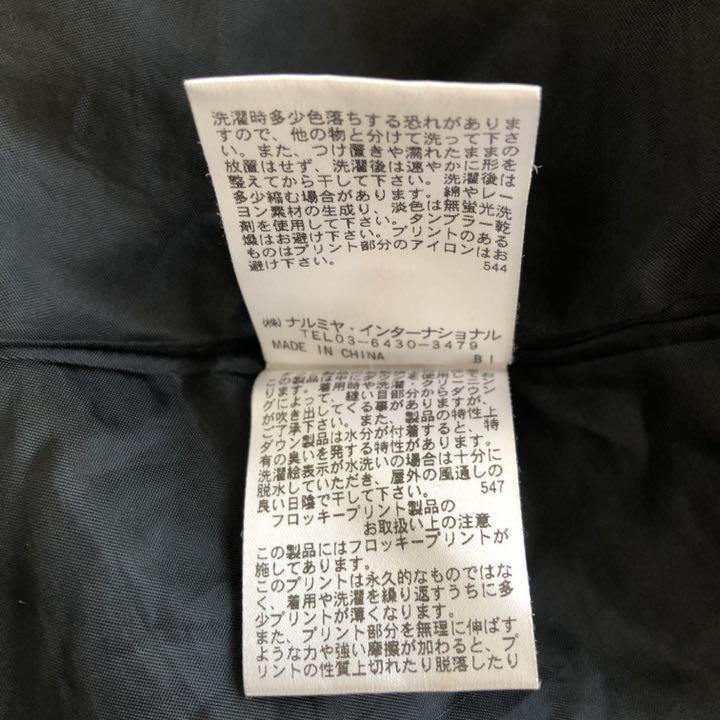 洗濯時多少色落ちする恐れがありま
すので、他の物と分けて洗って下さ
い。また、つけ置きや濡れたままの
放置はせず、洗濯後は速やかに形を
整えてから干して下さい。洗濯後は
多少縮む場合があります。綿やレー
ヨン素材の生成り、淡色は無蛍光洗
剤を使用して下さい。タンブラー乾
燥はお避け下さい。プリントのある
ものはプリント部分のアイロンはお
避け下さい。 544
(株)ナルミヤ・インターナショナル
TEL03-6430-3479
MADE IN CHINA BI
グによって、縫い目部分から
が吹き出してくる事がありますが、
ご了承下さい。また、製品の特性上
ダウン製品は水分が付着すると、特
有の臭いを発する特性があります。
洗濯絵表示が水洗いの場合は十分に
脱水していただき、屋外の風通しの
良い日陰で干して下さい。 547
フロッキープリント製品の
お取扱い上の注意
この製品にはフロッキープリントが
施してあります。
このプリントは永久的なものではな
く、着用や洗濯を繰り返すうちに多
少プリントが薄くなります。
また、プリント部分を無理に伸ばす
ような力や強い摩擦が加わると、プ
リントの性質上切れたり脱落したり